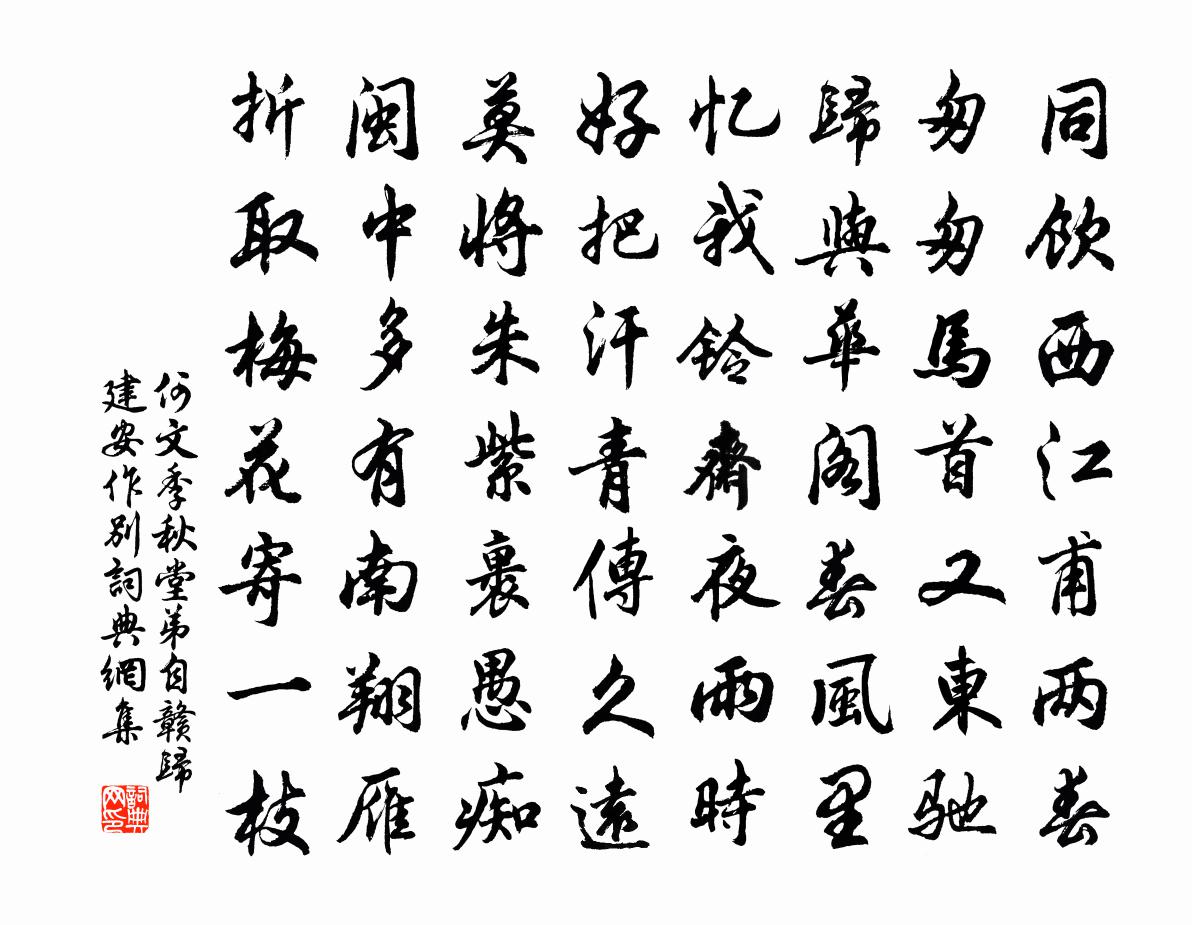 同饮西江甫两春
匆匆馬首又東驰
歸與華阁春風里
忆我鈴齋夜雨時
好把汗青傳久遠
莫將朱紫裹愚痴
闽中多有南翔雁
折取梅花寄一枝
何文季秋堂弟自赣歸
建安作别詞典網集
詞典网印